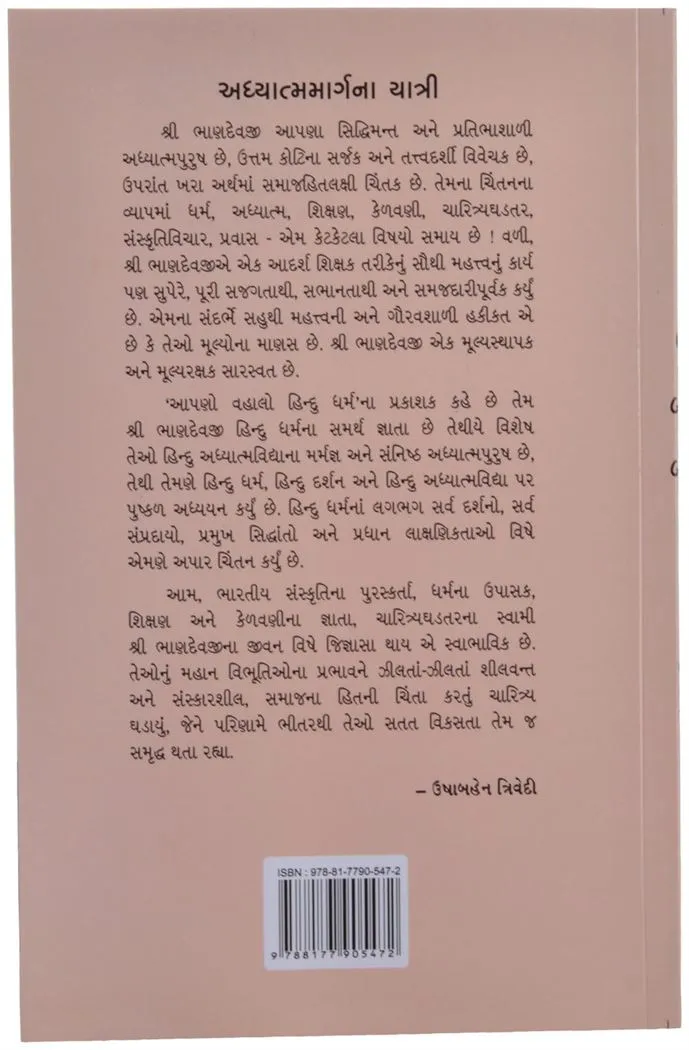 અધ્યાત્મમાર્ગના યાત્રી
શ્રી ભાણદેવજી આપણા સિદ્ધિમન્ત અને પ્રતિભાશાળી
અધ્યાત્મપુરુષ છે, ઉત્તમ કોટિના સર્જક અને તત્ત્વદર્શી વિવેચક છે,
ઉપરાંત ખરા અર્થમાં સમાજહિતલક્ષી ચિંતક છે. તેમના ચિંતનના
વ્યાપમાં ધર્મ, અધ્યાત્મ, શિક્ષણ, કેળવણી, ચારિત્ર્યઘડતર,
સંસ્કૃતિવિચાર, પ્રવાસ - એમ કેટકેટલા વિષયો સમાય છે ! વળી,
શ્રી ભાણદેવજીએ એક આદર્શ શિક્ષક તરીકેનું સૌથી મહત્ત્વનું કાર્ય
પણ સુપેરે, પૂરી સજગતાથી, સભાનતાથી અને સમજદારીપૂર્વક કર્યું
છે. એમના સંદર્ભે સહુથી મહત્ત્વની અને ગૌરવશાળી હકીકત એ
છે કે તેઓ મૂલ્યોના માણસ છે. શ્રી ભાણદેવજી એક મૂલ્યસ્થાપક
અને મૂલ્યરક્ષક સારસ્વત છે.
‘આપણો વહાલો હિન્દુ ધર્મ’ના પ્રકાશક કહે છે તેમ
શ્રી ભાણદેવજી હિન્દુ ધર્મના સમર્થ જ્ઞાતા છે તેથીયે વિશેષ
તેઓ હિન્દુ અધ્યાત્મવિદ્યાના મર્મજ્ઞ અને સંનિષ્ઠ અધ્યાત્મપુરુષ છે,
તેથી તેમણે હિન્દુ ધર્મ, હિન્દુ દર્શન અને હિન્દુ અધ્યાત્મવિદ્યા પર
પુષ્કળ અધ્યયન કર્યું છે. હિન્દુ ધર્મનાં લગભગ સર્વ દર્શનો, સર્વ
સંપ્રદાયો, પ્રમુખ સિદ્ધાંતો અને પ્રધાન લાક્ષણિકતાઓ વિષે
એમણે અપાર ચિંતન કર્યું છે.
આમ, ભારતીય સંસ્કૃતિના પુરસ્કર્તા, ધર્મના ઉપાસક,
શિક્ષણ અને કેળવણીના જ્ઞાતા, ચારિત્ર્યઘડતરના સ્વામી
શ્રી ભાણદેવજીના જીવન વિષે જિજ્ઞાસા થાય એ સ્વાભાવિક છે.
તેઓનું મહાન વિભૂતિઓના પ્રભાવને ઝીલતાં-ઝીલતાં શીલવન્ત
અને સંસ્કારશીલ, સમાજના હિતની ચિંતા કરતું ચારિત્ર્ય
ઘડાયું, જેને પરિણામે ભીતરથી તેઓ સતત વિકસતા તેમ જ
સમૃદ્ધ થતા રહ્યા.
– ઉષાબહેન ત્રિવેદી
ISBN : 978-81-7790-547-2
9 788177 905472